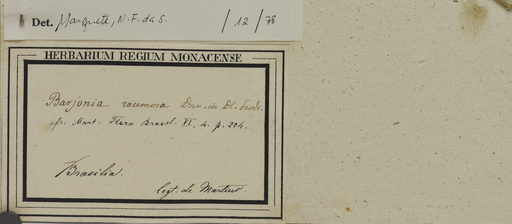 Det. Marquete, N.F. da S. /12/78
HERBARIUM REGIUM MONACENSE
Barjonia racemosa Dne. in DC. Prodr.
cfr. Mart. Flora Brasil. VI, 4. p. 204.
Brasilia.
legt. de Martius